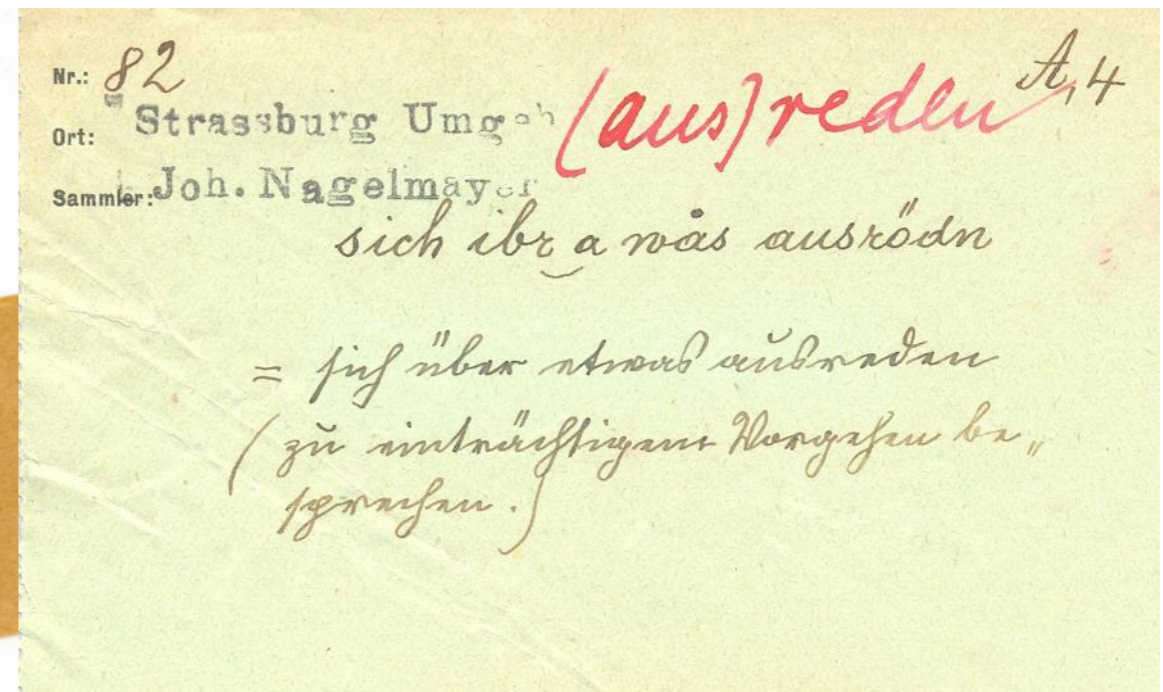 Nr.: 82
A, 4
Ort: Strassburg Umgeb
(aus)reden
Sammler: Joh. Nagelmayer
sich ibr a wås ausrödn
= sich über etwas ausreden
(zu einträchtigem Vorgehen be„
sprechen.)